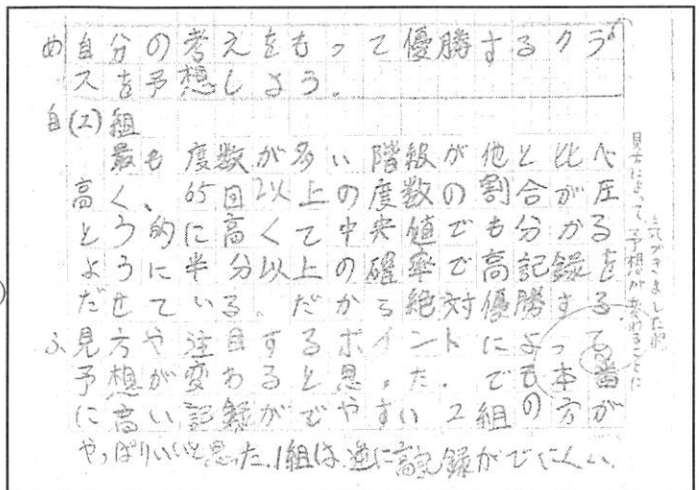 め 自分の考えをもって優勝するクラ
スを予想しよう。
自(2)組
最も度数が多い階級が他と比べ
高く、65回以上の度数の割合が圧
とう的に高くて中央値でも分かる
ように半分以上の確率で高記録を
だせている。だから絶対優勝する。
ふ 見方や注目するポイントによって
予想が変わると思った。でも本番
に高い記録がでやすい2組の方が
やっぱりいいと思った。1組は逆に高記録がでにくい。
見方によって、予想が変わることに
きました